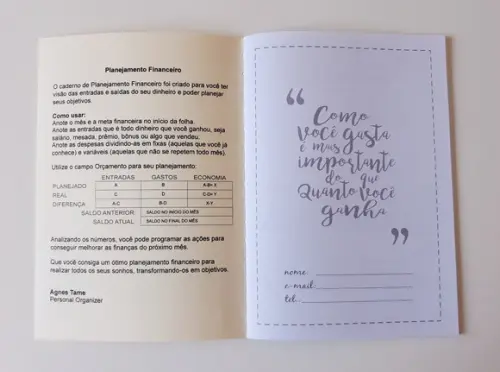 Planejamento Financeiro
O caderno de Planejamento Financeiro foi criado para você ter
visão das entradas e saídas do seu dinheiro e poder planejar
seus objetivos.
Como usar:
Anote o mês e a meta financeira no início da folha.
Anote as entradas que é todo dinheiro que você ganhou, seja
salário, mesada, prêmio, bônus ou algo que vendeu.
Anote as despesas dividindo-as em fixas (aquelas que você já
conhece) e variáveis (aquelas que não se repetem todo mês).
Utilize o campo Orçamento para seu planejamento:
ENTRADAS GASTOS ECONOMIA
PLANEJADO A B A-B= X
REAL C D C-D= Y
DIFERENÇA A-C B-D X-Y
SALDO ANTERIOR: SALDO NO INÍCIO DO MÊS
SALDO ATUAL: SALDO NO FINAL DO MÊS
Analizando os números, você pode programar as ações para
conseguir melhorar as finanças do próximo mês.
Que você consiga um ótimo planejamento financeiro para
realizar todos os seus sonhos, transformando-os em objetivos.
Agnes Tame
Personal Organizer
“Como
você gasta
é mais
importante
do que
Quanto você
ganha”
nome:
e-mail:
tel.: